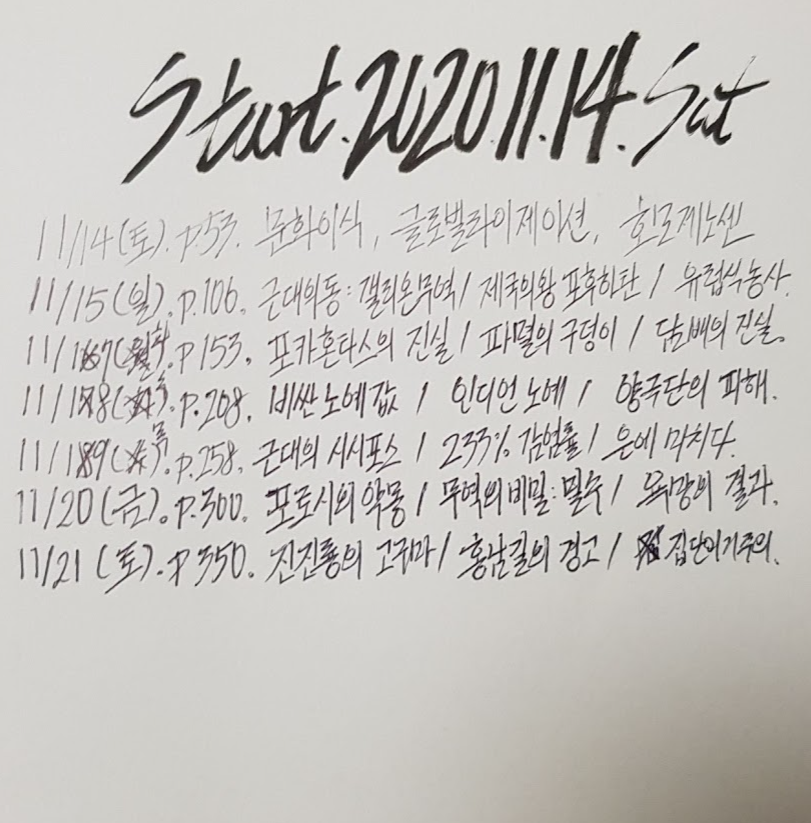 Start. 2020.11.14. Sat
11/14(토). p.53. 문화이식, 글로벌라이제이션, 호모제노센
11/15(일). p.106. 근대의동: 갤리온무역 / 제국의왕 포우하탄 / 유럽식농사.
11/17(화). p153. 포카혼타스의 진실 / 파멸의 구덩이 / 담배의 진실.
11/18(수). p.208. 비싼 노예값 / 인디언 노예 / 양극단의 피해.
11/19(목). p.258. 근대의 시시포스 / 233% 감염률 / 은에 미치다.
11/20(금). p.300. 포토시의 악몽 / 무역의 비밀: 밀수 / 욕망의 결과.
11/21(토). p350. 진진룡의 고구마 / 홍날길의 경고 / 집단이기주의.